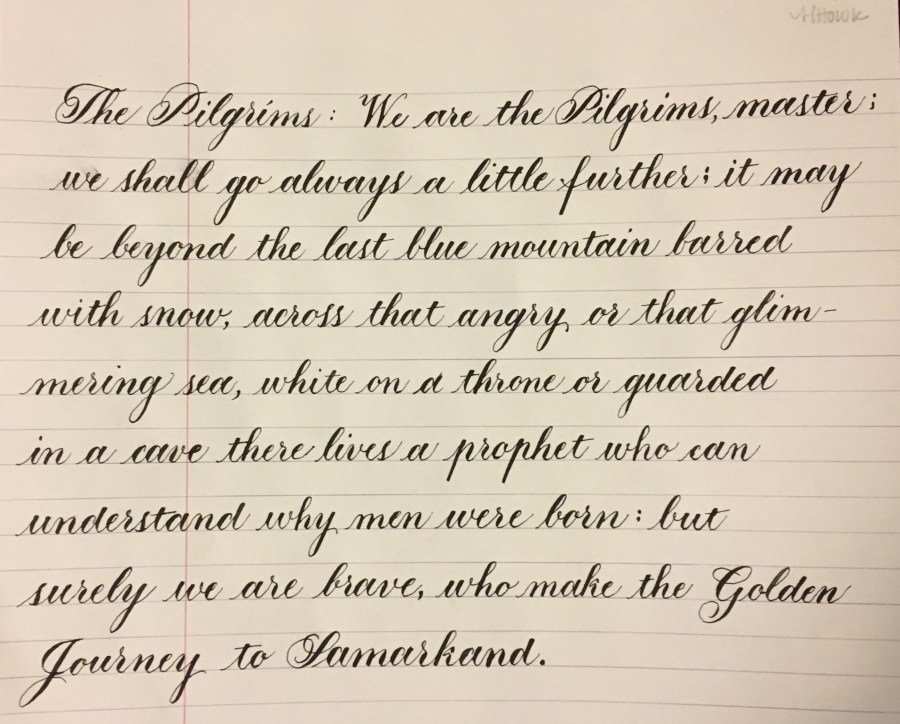 The Pilgrims: We are the Pilgrims, master;
we shall go always a little further; it may
be beyond the last blue mountain barred
with snow, across that angry or that glim-
mering sea, white on a throne or guarded
in a cave there lives a prophet who can
understand why men were born: but
surely we are brave, who make the Golden
Journey to Samarkand.